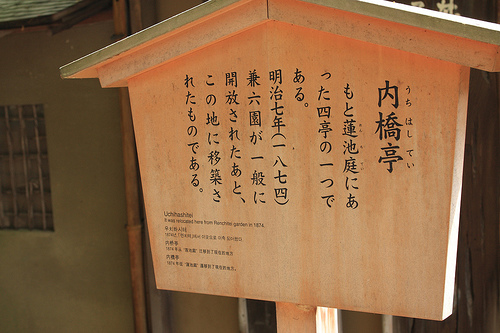 内橋亭
うちはしてい
もと蓮池庭にあ
った四亭の一つで
ある。
明治七年(一八七四)
兼六園が一般に
開放されたあと、
この地に移築さ
れたものである。
Uchihashitei
It was relocated here from Renchitei garden in 1874.